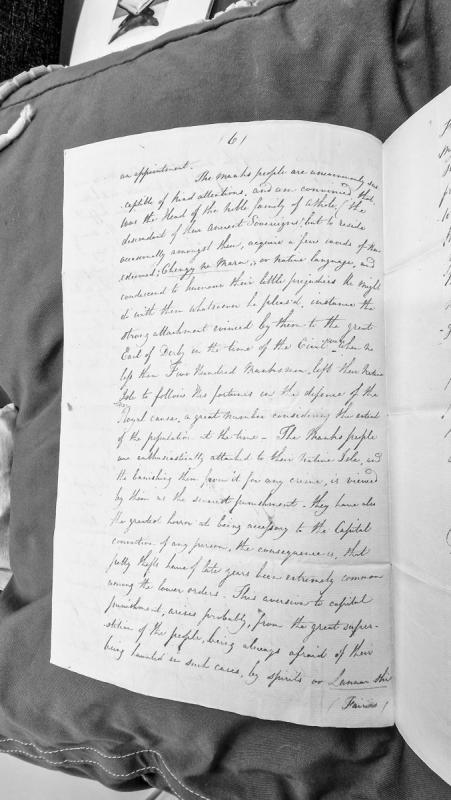 (6)
an appointment.
The Manks people are uncommonly sus
ceptible of kind attentions, and am convinced that,
was the Head of the Noble family of Athole, (the
descendant of their ancient Sovereigns) but to reside
occasionally amongst them, acquire a few words of their
esteemed, Chengy ne Mara, or native language, and
condescend to humour their little prejudices He might
do with them whatsoever he pleas'd. instance the
strong attachment evinced by them to the great
Earl of Derby in the time of the Civil wars, when no
less than Five Hundred Manksmen, left their Native
Isle to follow his fortunes in the defence of the
Royal cause, a great number considering the extent
of the population at the time – The Manks people
are enthusiastically attached to their Native Isle, and
the banishing them from it for any crime, is viewed
by them as the severest punishment – they have also
the greatest horror at being accessory to the Capital
conviction of any person, the consequence is, that
petty thefts have of late years been extremely common
among the lower orders. This aversion to capital
punishment, arises probably, from the great super-
stition of the people, being always afraid of their
being haunted in such cases, by spirits or Lannan shee
(Fairies)